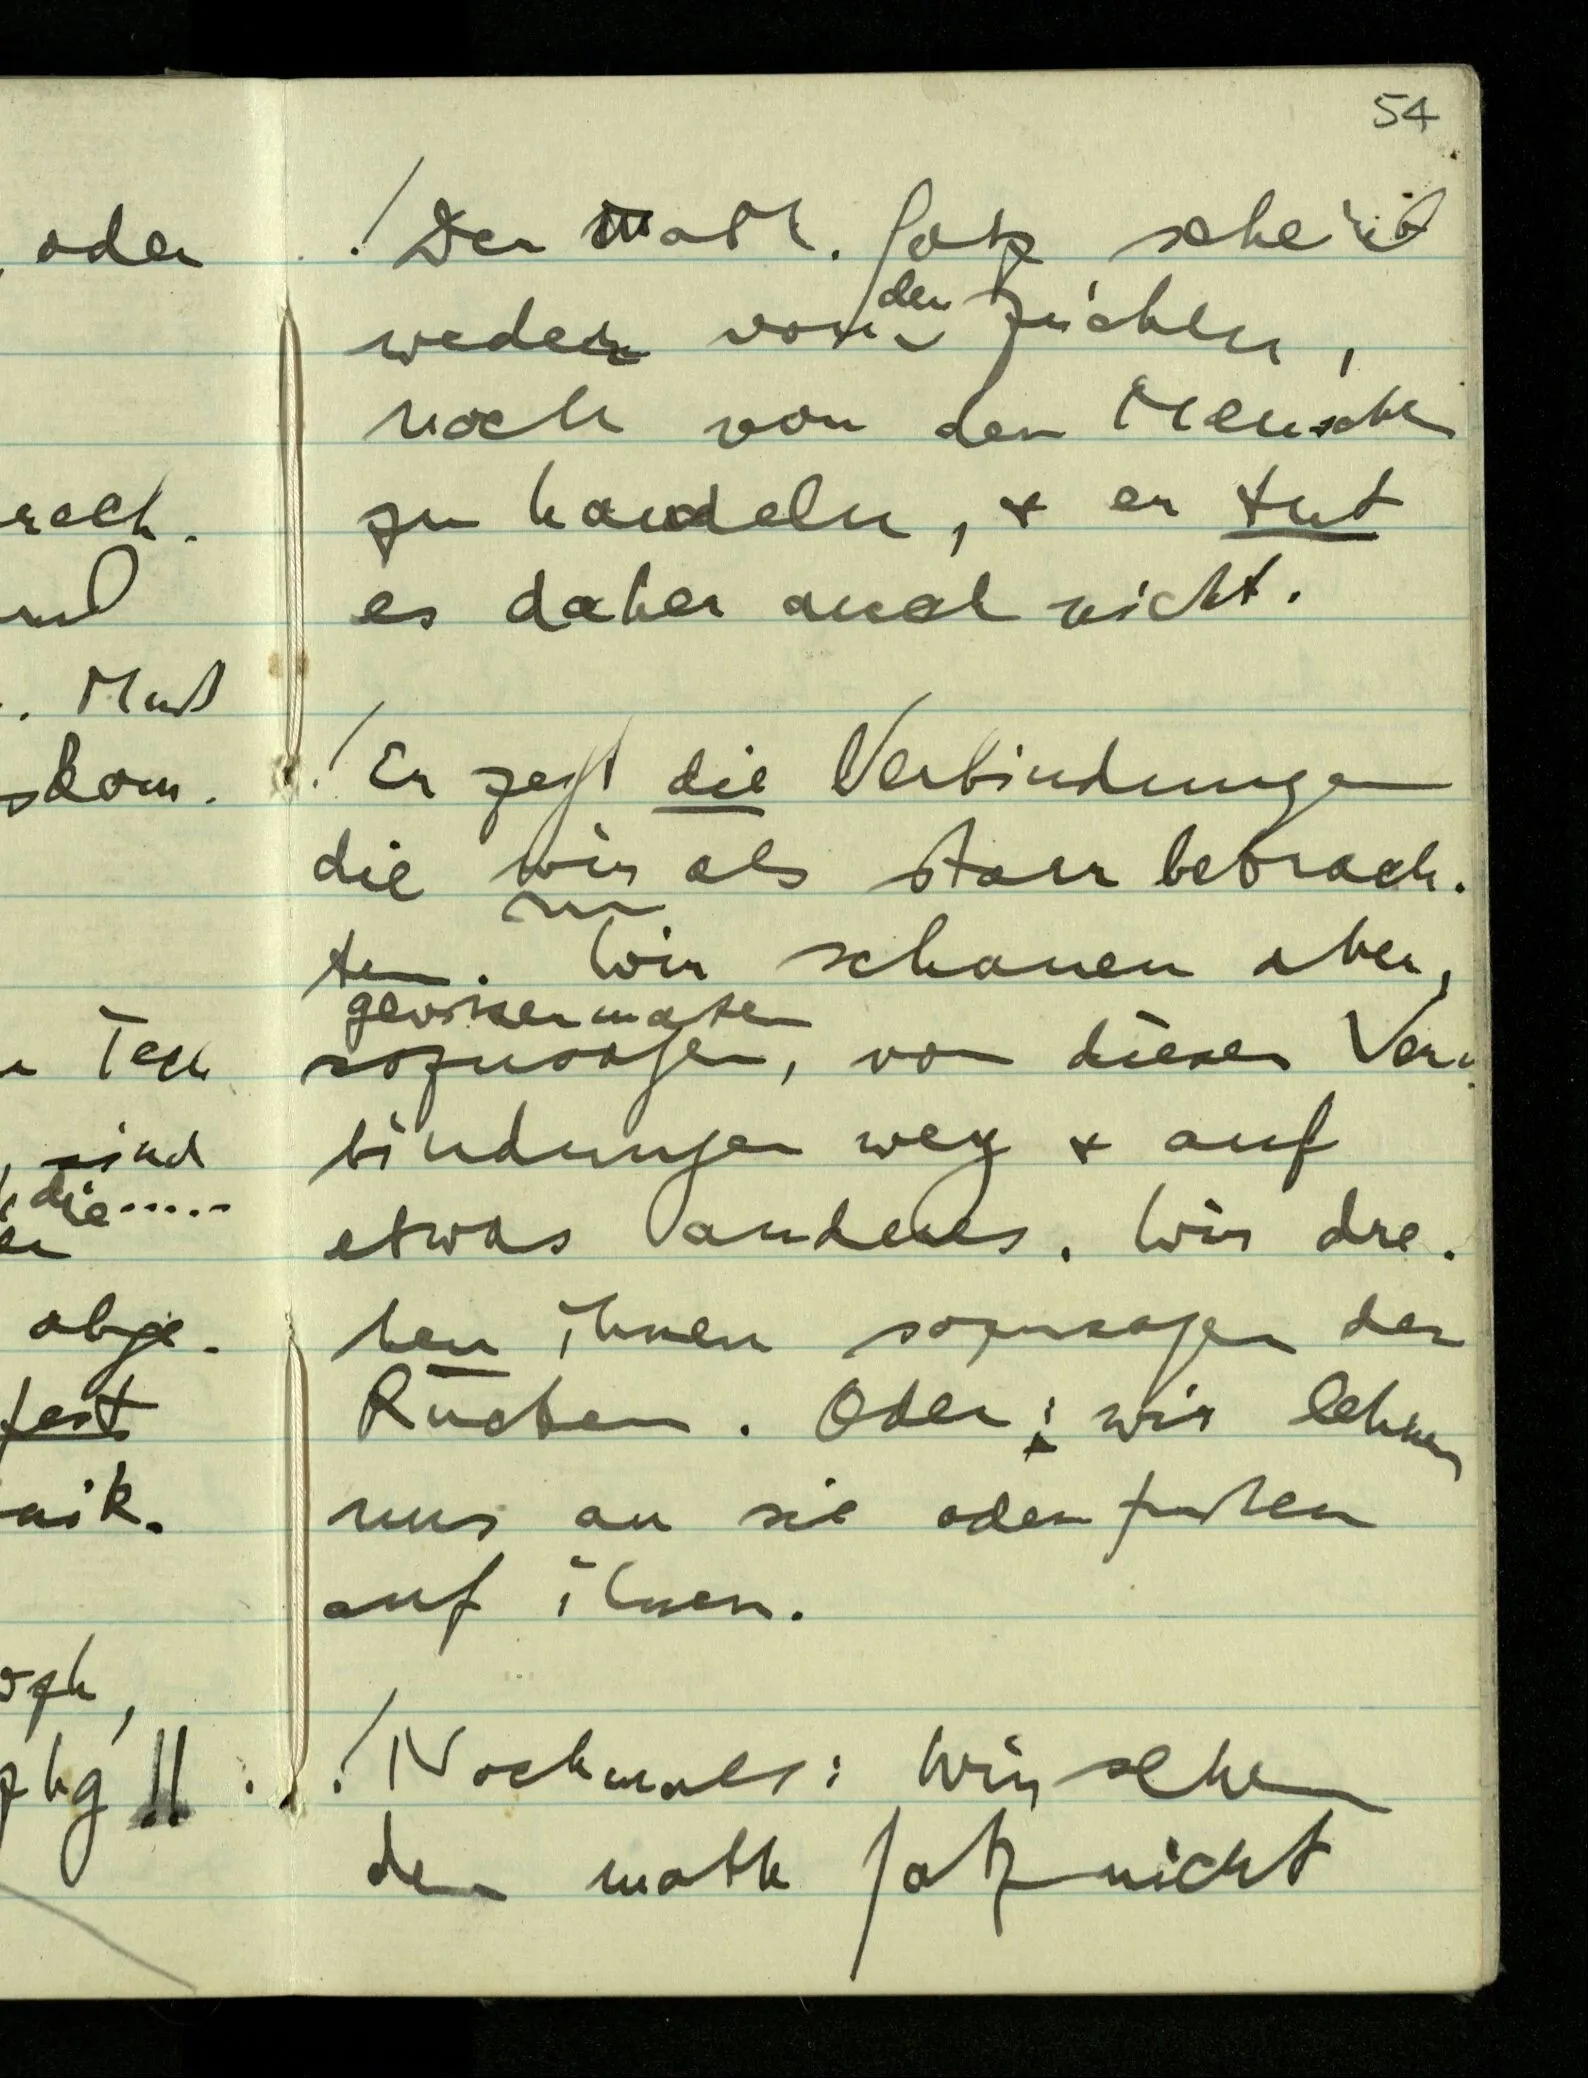 54
, oder
rach.
. Muß
skom.
Tech
, sind
die.....
er
abge.
fest
nik.
!!
! Der Math. Satz scheint
den
weder von Zeichen,
noch von den Menschen
zu handeln, + er tut
es daher auch nicht.
! Er zeigt die Verbindungen
die wir als starr betrach.
ten. Wir schauen aber,
gewissermaßen
sozusagen, von diesen Ver-
bindungen weg + auf
etwas anderes. Wir dre.
hen ihnen sozusagen den
Rücken. Oder: wir lehnen
uns an sie oder fußen
auf ihnen.
! Nochmals: Wir sehen
den math Satz nicht